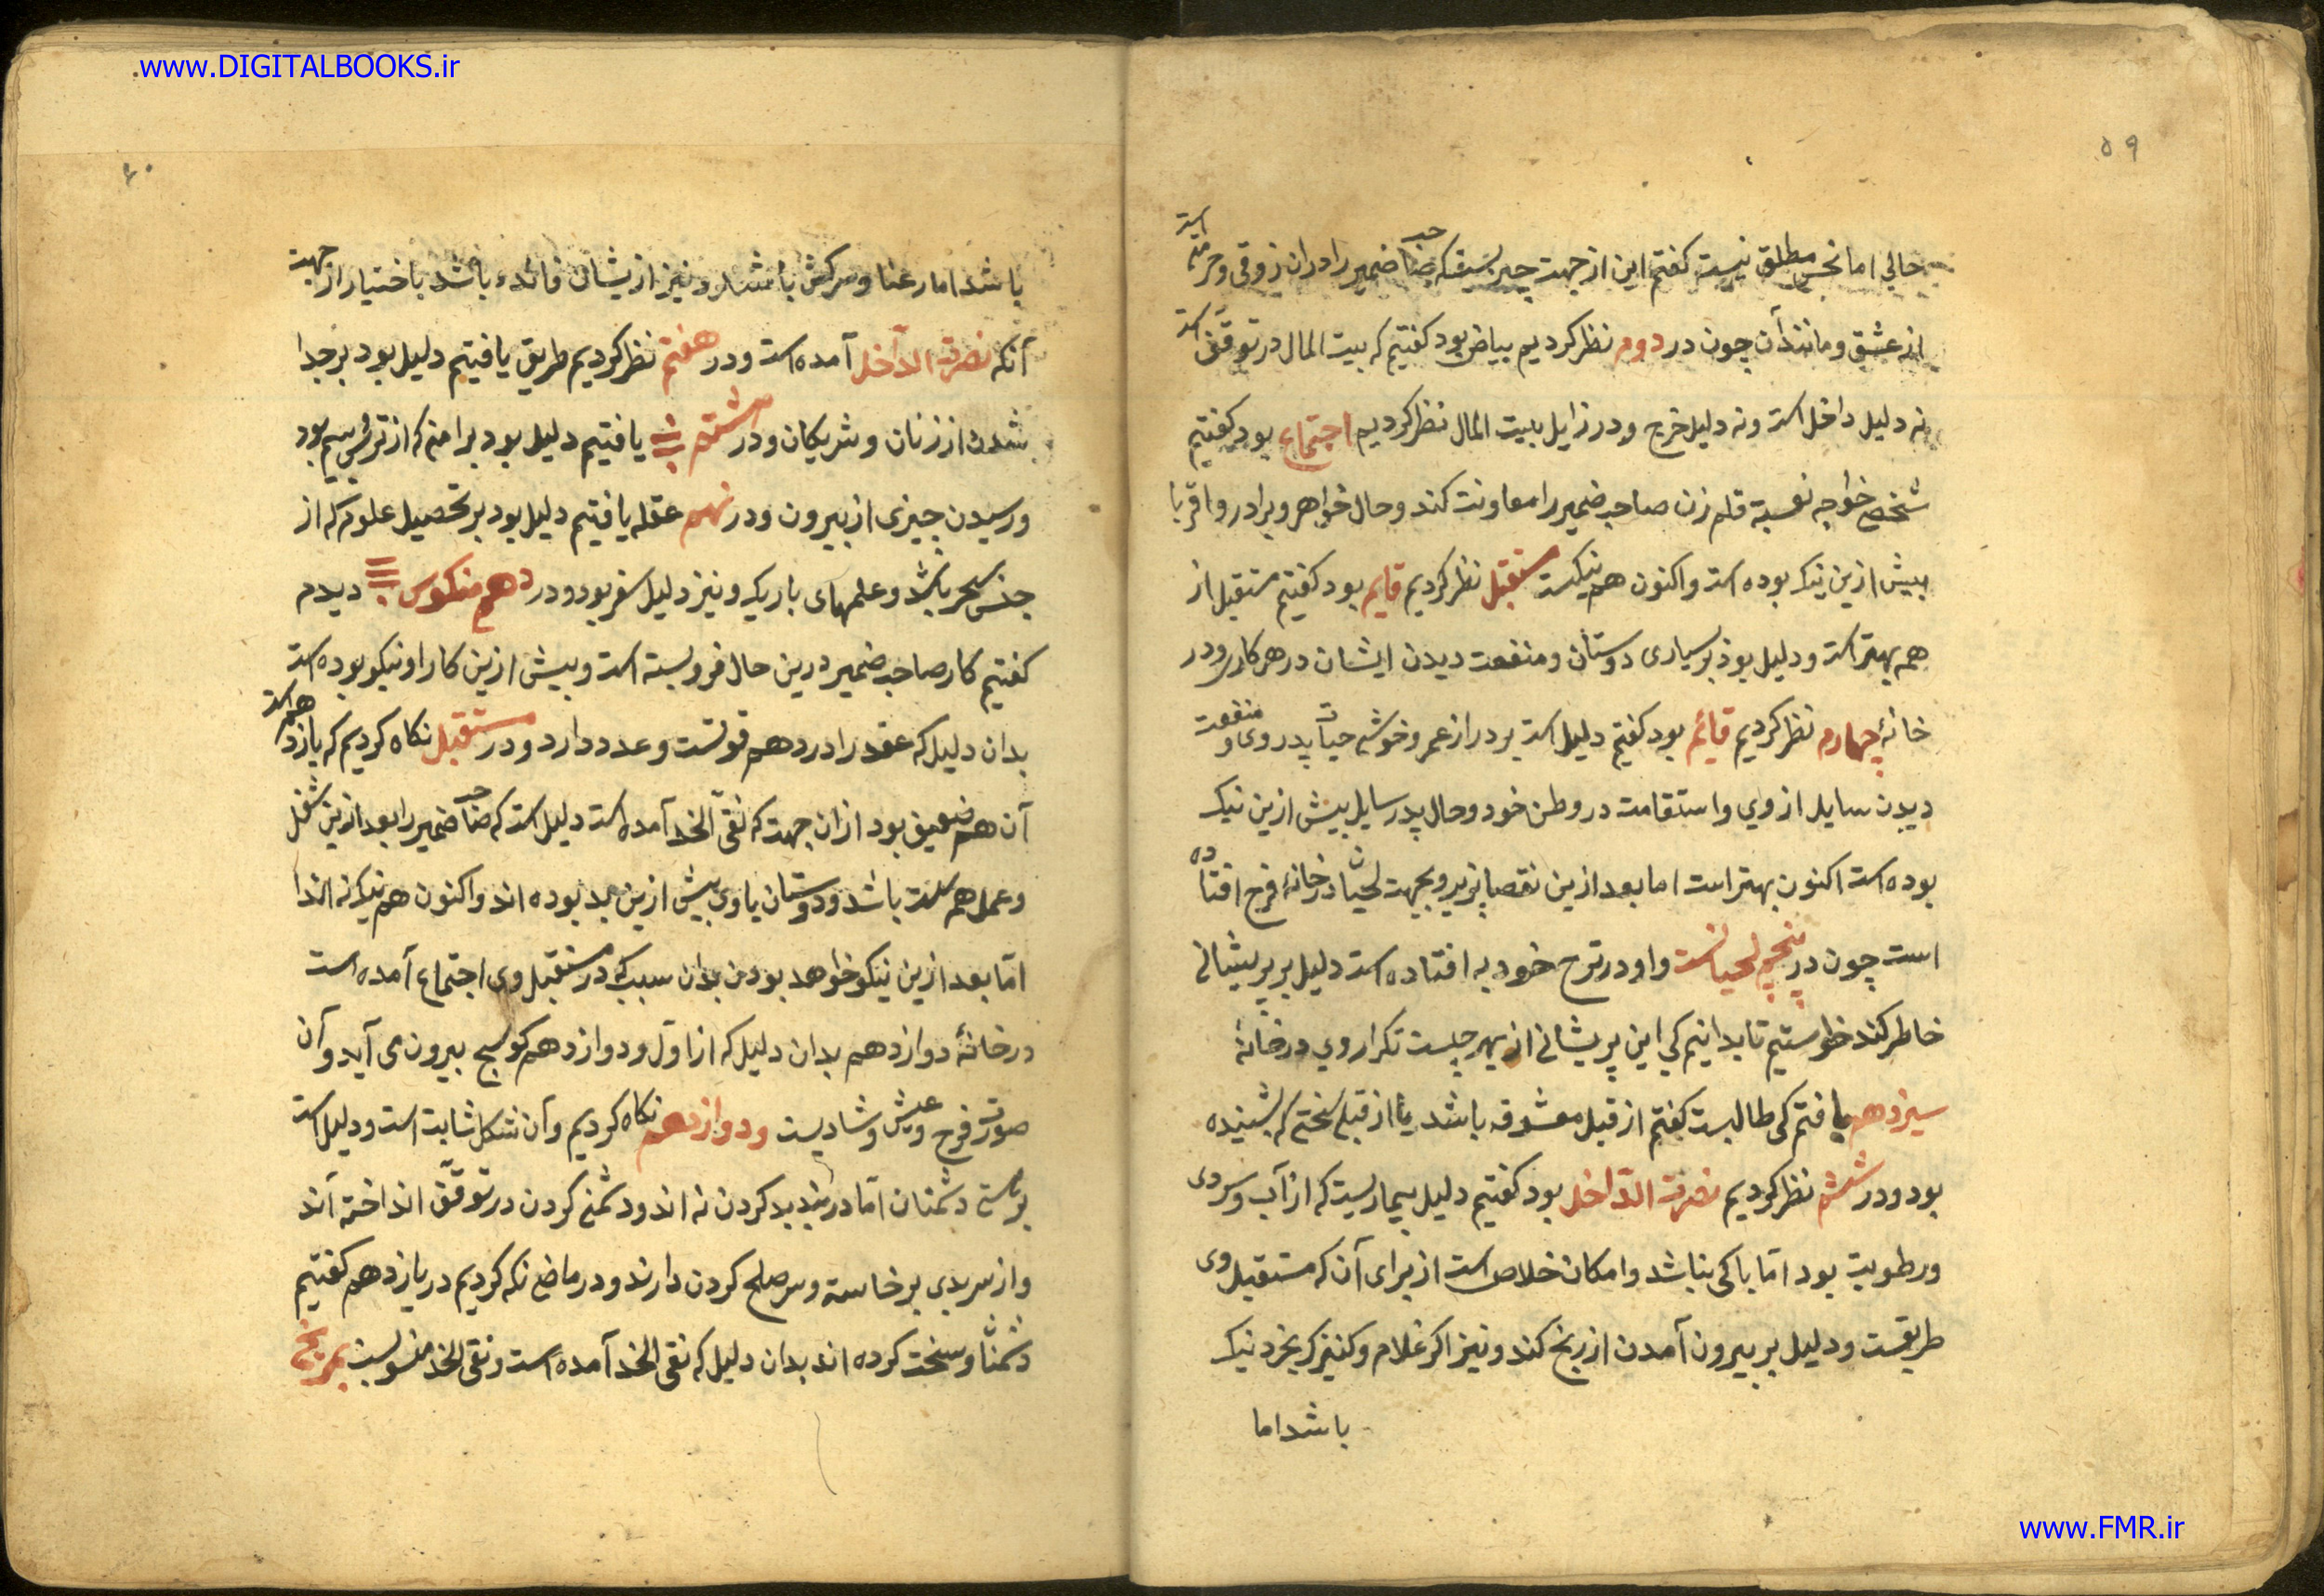 www.DIGITALBOOKS.ir
۵۹
حالی اما نحس مطلق نیست کفتم این از جهت چیریست که صاحب ضمیر را در ان ذوقی و حرمتی است
از عشق و مانند آن چون در دوم نظر کردیم بیاض بود کفتیم که بیت المال در توقف است
نه دلیل داخل است و نه دلیل خرج و در زایل بیت المال نظر کردیم اجتماع بود کفتیم
شخصی خواجه قلم زن صاحب ضمیر را معاونت کند و حال خواهر و برادر و اقربا
پیش ازین نیک بوده است و اکنون هم نیکست مستقبل نظر کردیم قایم بود کفتیم مستقبل از
همه بهتر است و دلیل بود بر بسیاری دوستان و منفعت دیدن ایشان در هر کاری و در
خانهٔ چهارم نظر کردیم قائم بود کفتم دلیل است بر دراز عمر و خوشی حیات پدر وی و منفعت
دیدن سایل از وی و استقامت در وطن خود و حال پدر سایل پیش ازین نیک
بوده است اکنون بهتر است اما بعد ازین نقصان پذیرد بجهت لحیان در خانهٔ فرح افتاده
است چون در پنجم لحیانست و او در ترح خود به افتاده است دلیل بر پریشانی
خاطر کند خواستیم تا بدانیم کی این پریشانی از بهر چیست تکرار وی در خانهٔ
سیزدهم یافتم کی طالبست کفتم از قبل معشوقه باشد یا از قبل سخنی که بشنیده
بود و در ششم نظر کردیم نصرة الداخل بود کفتیم دلیل بیماریست که از آب و سردی
و رطوبت بود اما باکی نباشد و امکان خلاص است از برای آن که مستقبل وی
طریقست و دلیل بر بیرون آمدن از رنج کند و نیز اکر غلام و کنیزک بخرد نیک
باشد اما
۶۰
باشد اما رعنا و سرکش باشد و نیز ازیشان فائده باشد باختیار از جهت
آنکه نصرة الداخل آمده است و در هفتم نظر کردیم طریق یافتیم دلیل بود بر جدا
شدن از زنان و شریکان و در هشتم یافتیم دلیل بود بر امنی که از ترس و بیم بود
و رسیدن چیزی از بیرون و در نهم عقله یافتیم دلیل بود بر تحصیل علوم که از
جنس سحر باشد و علمهای باریک و نیز دلیل سفر بود و در دهم منکوس دیدم
کفتیم کار صاحب ضمیر درین حال فرو بسته است و پیش ازین کار او نیکو بوده است
بدان دلیل که عقله را در دهم قوتست و عدد دارد و در مستقبل نکاه کردیم که یازدهم است
آن هم ضعیف بود از ان جهت که نقی الخد آمده است دلیل است که صاحب ضمیر را بعد ازین شغل
و عمل هم سست باشد و دوستان با وی پیش ازین بد بوده اند و اکنون هم نیک نه اند
اما بعد ازین نیکو خواهد بودن بدان سبب که در مستقبل وی اجتماع آمده است
در خانهٔ دوازدهم بدان دلیل که از اول و دوازدهم کوسج بیرون می آید و آن
صورت فرح و عیش و شادیست و دوازدهم نکاه کردیم و آن شکل ثابت است و دلیل است
بر دشمنان اما در بند بد کردن نه اند و دشمنی کردن در توقف انداخته اند
و از سر بدی برخاسته و سر صلح کردن دارند و در ماضی نکه کردیم در یازدهم کفتیم
دشمنان سخت کرده اند بدان دلیل که نقی الخد آمده است و نقی الخد منسوبست بمریخ
www.FMR.ir